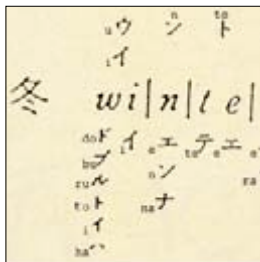 u ウ n ン to ト
i イ
冬 wi|n|te|
do ド i イ e エ te テ e エ e
bu ブ n ン
ru ル na ナ ra
to ト
i イ
ha ハ